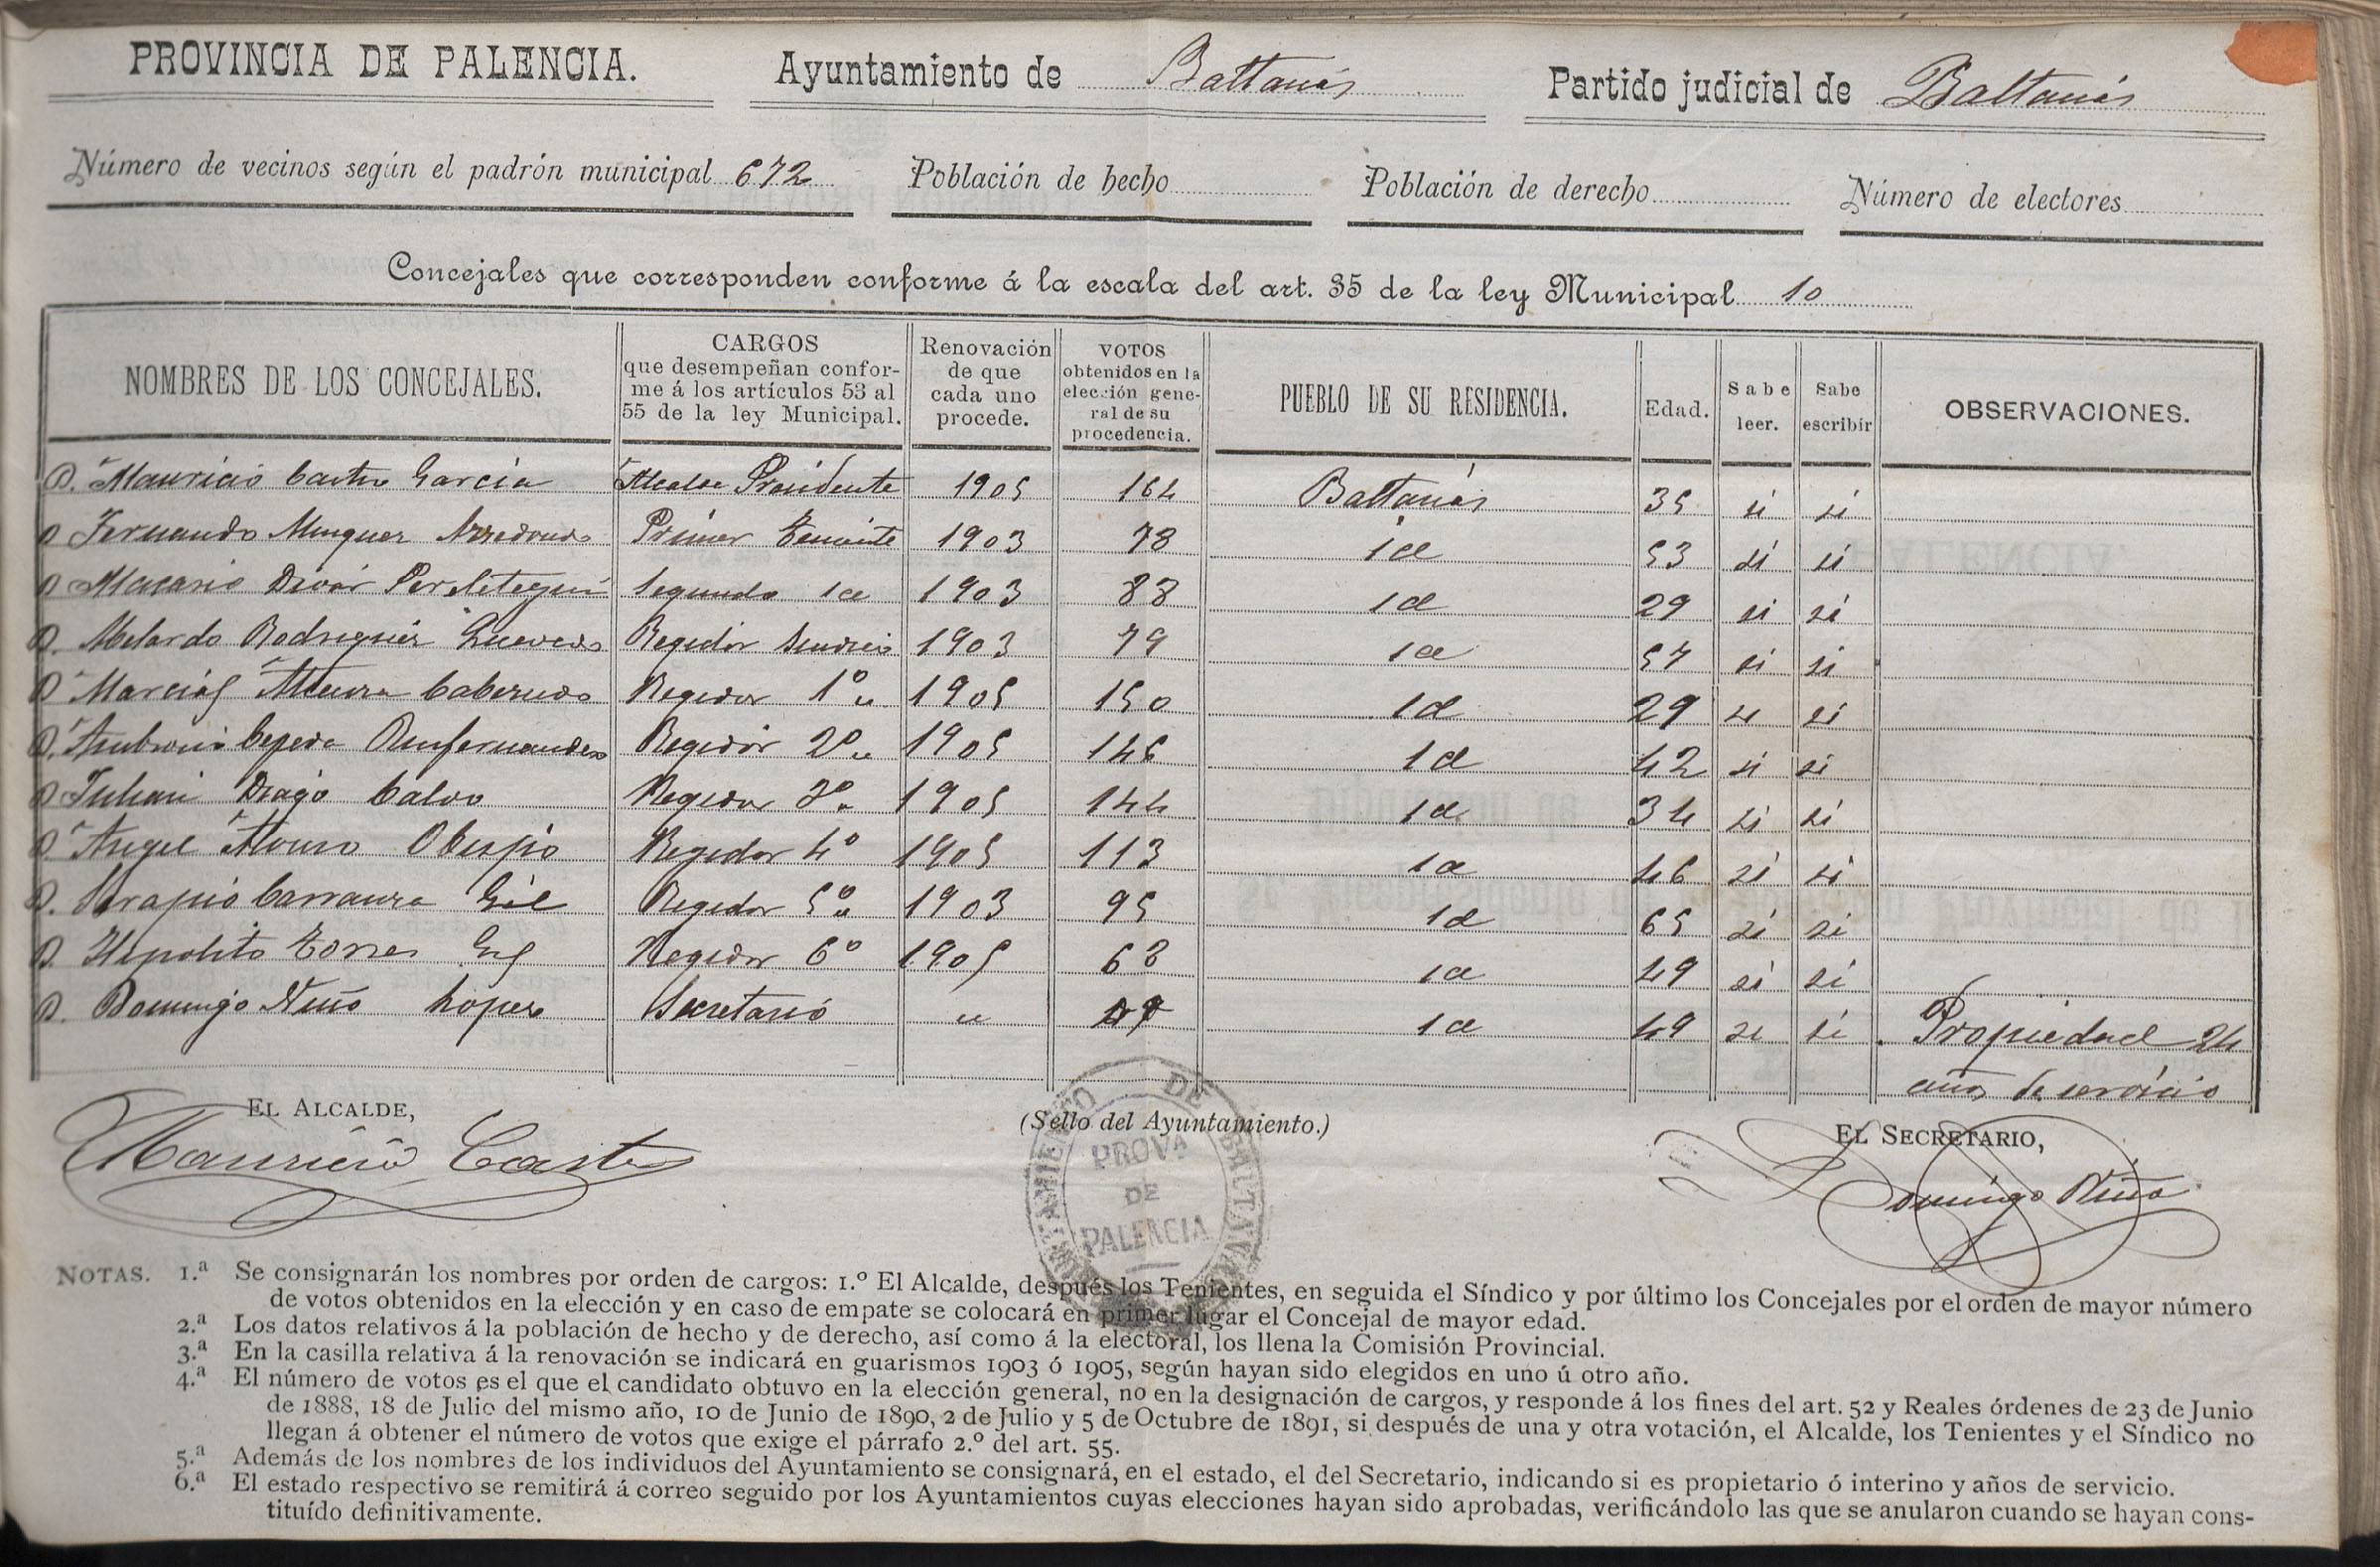 PROVINCIA DE PALENCIA. Ayuntamiento de Baltanás Partido judicial de Baltanás
Número de vecinos según el padrón municipal 672 Población de hecho Población de derecho Número de electores
Concejales que corresponden conforme á la escala del art. 35 de la ley Municipal 10
NOMBRES DE LOS CONCEJALES.
CARGOS
que desempeñan confor-
me á los artículos 53 al
55 de la ley Municipal.
Renovación
de que
cada uno
procede.
VOTOS
obtenidos en la
elección gene-
ral de su
procedencia.
PUEBLO DE SU RESIDENCIA.
Edad.
Sabe
leer.
Sabe
escribir
OBSERVACIONES.
D. Mauricio Castro García Alcalde Presidente 1905 164 Baltanás 35 si si
D. Fernando Minguez Arredondo Primer Teniente 1903 78 id 53 si si
D. Macario Segundo id 1903 88 id 29 si si
D. Abelardo Rodriguez Regidor Sindico 1903 79 id 57 si si
D. Marcial Regidor 1º 1905 150 id 29 si si
D. Ambrosio Cepeda Regidor 2º 1905 146 id 42 si si
D. Julian Drago Calvo Regidor 3º 1905 144 id 34 si si
D. Angel Alonso Obispo Regidor 4º 1905 113 id 46 si si
D. Serapio Carranza Gil Regidor 5º 1903 95 id 65 si si
D. Hipolito Torres Gil Regidor 6º 1905 68 id 49 si si
D. Domingo Niño Lopez Secretario " id 49 si si Propiedad 24
años de servicio
EL ALCALDE,
Mauricio Castro
(Sello del Ayuntamiento.)
AYUNTAMIENTO DE BALTANAS
PROVA
DE
PALENCIA
EL SECRETARIO,
Domingo Niño
NOTAS. 1.ª Se consignarán los nombres por orden de cargos: 1.º El Alcalde, después los Tenientes, en seguida el Síndico y por último los Concejales por el orden de mayor número
de votos obtenidos en la elección y en caso de empate se colocará en primer lugar el Concejal de mayor edad.
2.ª Los datos relativos á la población de hecho y de derecho, así como á la electoral, los llena la Comisión Provincial.
3.ª En la casilla relativa á la renovación se indicará en guarismos 1903 ó 1905, según hayan sido elegidos en uno ú otro año.
4.ª El número de votos es el que el candidato obtuvo en la elección general, no en la designación de cargos, y responde á los fines del art. 52 y Reales órdenes de 23 de Junio
de 1888, 18 de Julio del mismo año, 10 de Junio de 1890, 2 de Julio y 5 de Octubre de 1891, si después de una y otra votación, el Alcalde, los Tenientes y el Síndico no
llegan á obtener el número de votos que exige el párrafo 2.º del art. 55.
5.ª Además de los nombres de los individuos del Ayuntamiento se consignará, en el estado, el del Secretario, indicando si es propietario ó interino y años de servicio.
6.ª El estado respectivo se remitirá á correo seguido por los Ayuntamientos cuyas elecciones hayan sido aprobadas, verificándolo las que se anularon cuando se hayan cons-
tituído definitivamente.